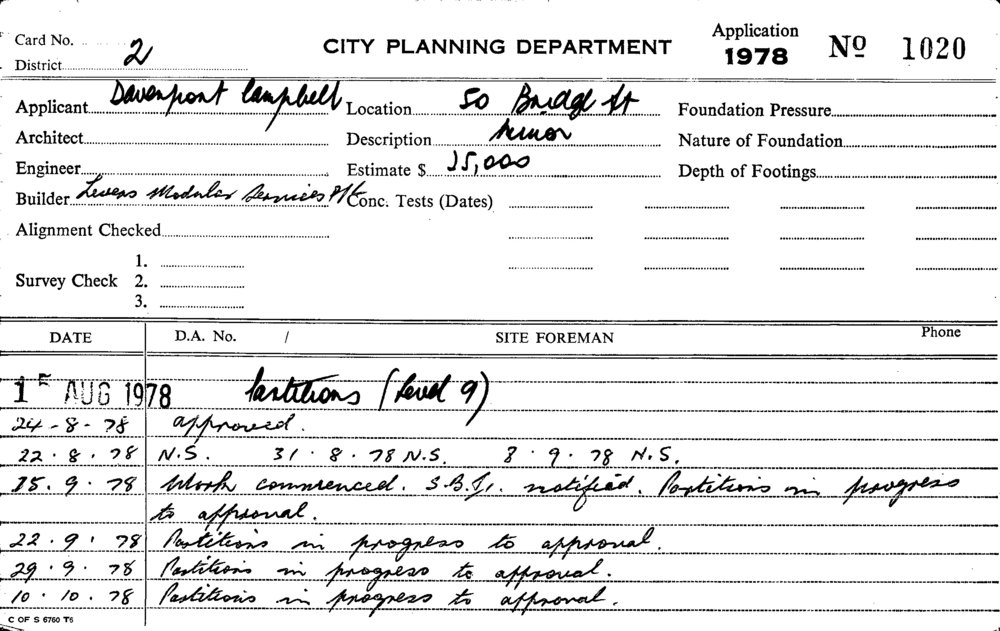 Card No.
District 2
CITY PLANNING DEPARTMENT
Application 1978
Nº 1020
Applicant Davenport Campbell
Location 50 Bridge St
Foundation Pressure
Architect
Description Minor
Nature of Foundation
Engineer
Estimate $ 25,000
Depth of Footings
Builder Levens Modular Services P/L
Conc. Tests (Dates)
Alignment Checked
Survey Check 1. 2. 3.
DATE D.A. No. / SITE FOREMAN Phone
15 AUG 1978 Partitions (Level 9)
24-8-78 approved.
22.8.78 N.S. 31.8.78 N.S. 8.9.78 N.S.
15.9.78 Work commenced. notified. Partitions in progress
to approval.
22.9.78 Partitions in progress to approval.
29.9.78 Partitions in progress to approval.
10.10.78 Partitions in progress to approval.
C OF S 6760 T6